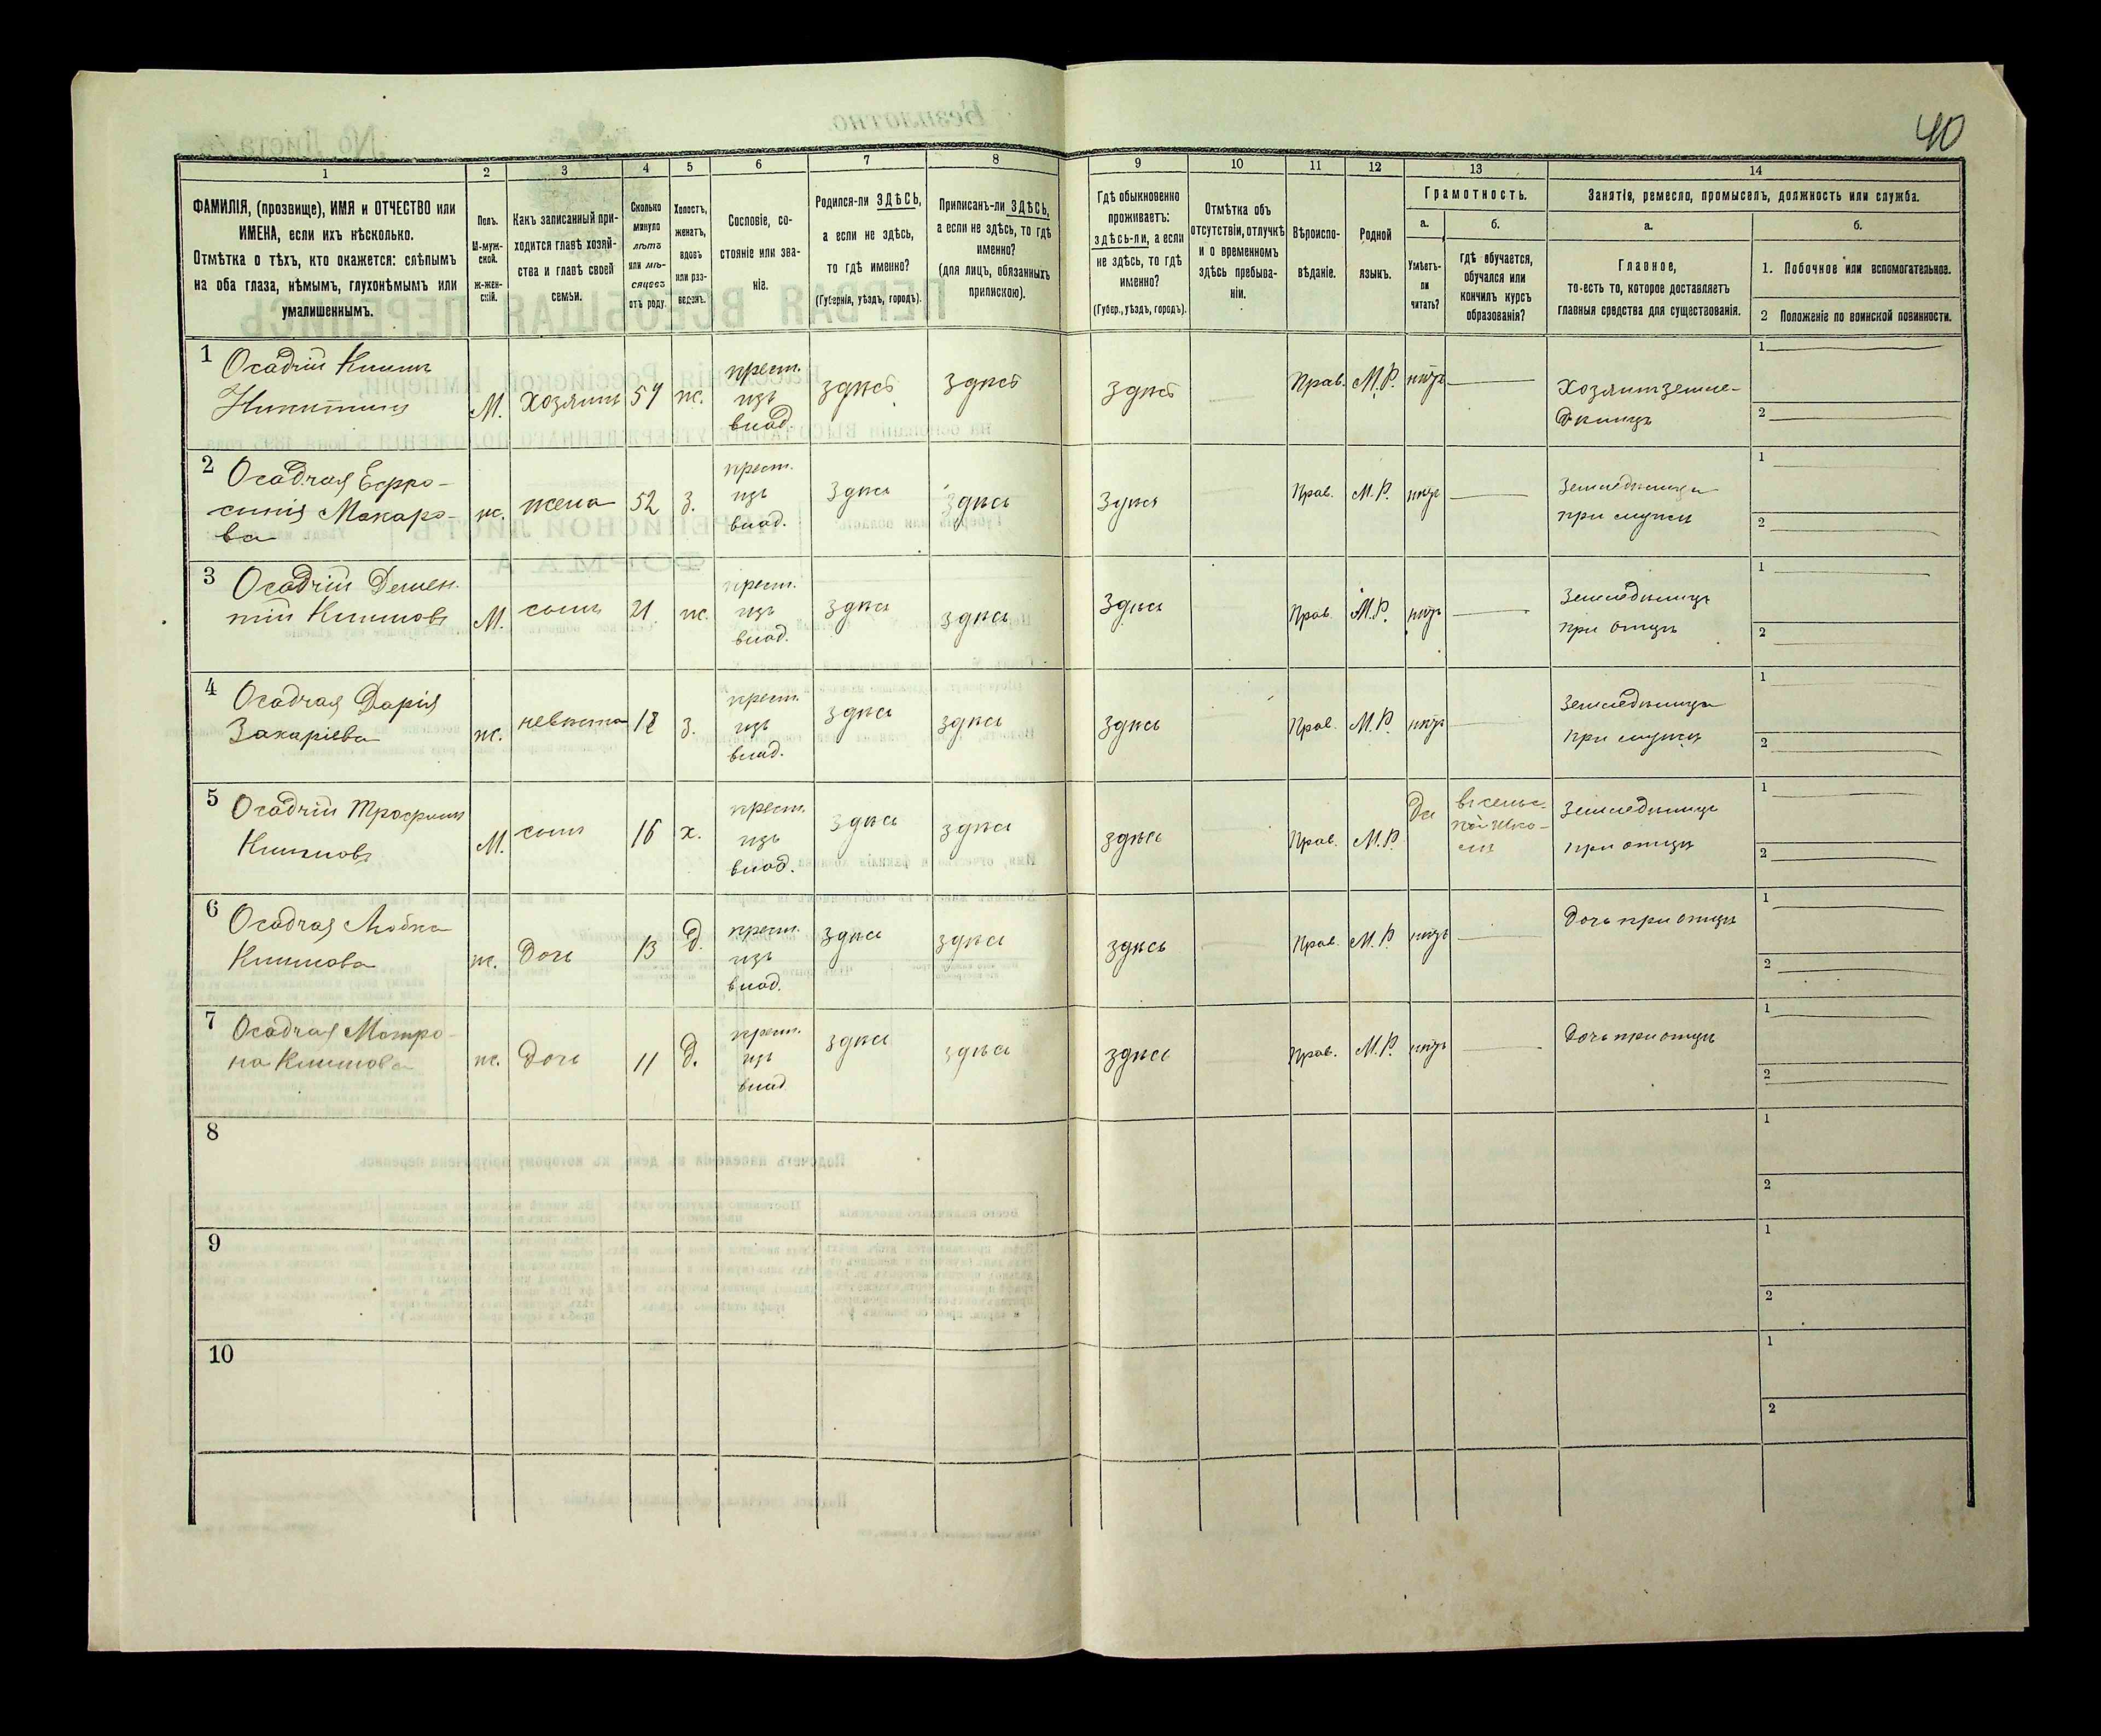 40
1
2
3
4
5
6
7
8
9
10
11
12
13
14
ФАМИЛІЯ, (прозвище), ИМЯ и ОТЧЕСТВО или
ИМЕНА, если ихъ нѣсколько.
Отмѣтка о тѣхъ, кто окажется: слѣпымъ
на оба глаза, нѣмымъ, глухонѣмымъ или
умалишеннымъ.
Полъ.
М-муж-
ской.
Ж-жен-
скій.
Какъ записанный при-
ходится главѣ хозяй-
ства и главѣ своей
семьи.
Сколько
минуло
лѣтъ
или мѣ-
сяцевъ
отъ роду.
Холостъ,
женатъ,
вдовъ
или раз-
веденъ.
Сословіе, со-
стояніе или зва-
ніе.
Родился-ли ЗДѢСЬ,
а если не здѣсь,
то гдѣ именно?
(Губернія, уѣздъ, городъ).
Приписанъ-ли ЗДѢСЬ,
а если не здѣсь, то гдѣ
именно?
(для лицъ, обязанныхъ
припискою).
Гдѣ обыкновенно
проживаетъ:
здѣсь-ли, а если
не здѣсь, то гдѣ
именно?
(Губер., уѣздъ, городъ).
Отмѣтка объ
отсутствіи, отлучкѣ
и о временномъ
здѣсь пребыва-
ніи.
Вѣроиспо-
вѣданіе.
Родной
языкъ.
Грамотность.
а.
Умѣетъ-
ли
читать?
б.
гдѣ обучается,
обучался или
кончилъ курсъ
образованія?
Занятія, ремесло, промыселъ, должность или служба.
а.
Главное,
то-есть то, которое доставляетъ
главныя средства для существованія.
б.
1. Побочное или вспомогательное.
2 Положеніе по воинской повинности.
1 Осадчій Климъ
Никитинъ
М.
Хозяинъ
57
ж.
крест.
изъ
влад.
здѣсь
здѣсь
здѣсь
Прав.
М.Р.
нѣтъ
Хозяинъ земле-
дѣлецъ
1
2
2 Осадчая Евфро-
синія Макаро-
ва
ж.
жена
52
з.
крест.
изъ
влад.
здѣсь
здѣсь
здѣсь
Прав.
М.Р.
нѣтъ
Земледѣлица
при мужѣ
1
2
3 Осадчій Демен-
тій Климовъ
М.
сынъ
21
ж.
крест.
изъ
влад.
здѣсь
здѣсь
здѣсь
Прав.
М.Р.
нѣтъ
Земледѣлецъ
при отцѣ
1
2
4 Осадчая Дарія
Захаріева
ж.
невѣстка
18
з.
крест.
изъ
влад.
здѣсь
здѣсь
здѣсь
Прав.
М.Р.
нѣтъ
Земледѣлица
при мужѣ
1
2
5 Осадчій Трофимъ
Климовъ
М.
сынъ
16
х.
крест.
изъ
влад.
здѣсь
здѣсь
здѣсь
Прав.
М.Р.
Да
въ сельс-
кой шко-
лѣ
Земледѣлецъ
при отцѣ
1
2
6 Осадчая Любка
Климова
ж.
Дочь
13
д.
крест.
изъ
влад.
здѣсь
здѣсь
здѣсь
Прав.
М.Р.
нѣтъ
Дочь при отцѣ
1
2
7 Осадчая Матро-
на Климова
ж.
Дочь
11
д.
крест.
изъ
влад.
здѣсь
здѣсь
здѣсь
Прав.
М.Р.
нѣтъ
Дочь при отцѣ
1
2
8
1
2
9
1
2
10
1
2